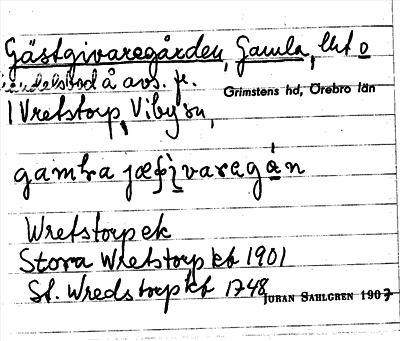 Gästgivaregården, Gamla, lht o
handelsbod å avs. fr.
Grimstens hd, Örebro län
1 Vretstorp, Viby sn,
gamla jæʃìvaregǻn
Wretstorp ek
Stora Wretstorp kb 1901
St. Wredstorp kb 1748
JÖRAN SAHLGREN 1907